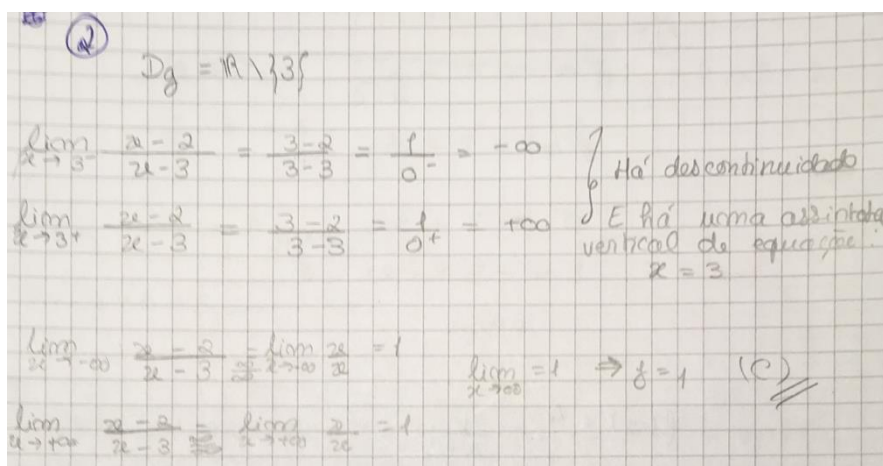 2
Dg = ℝ \ {3}
lim x→3⁻ x-2/x-3 = 3-2/3-3 = 1/0⁻ = -∞
lim x→3⁺ x-2/x-3 = 3-2/3-3 = 1/0⁺ = +∞
Há descontinuidade
E há uma assintota
vertical de equação:
x = 3
lim x→-∞ x-2/x-3 = lim x→-∞ x/x = 1
lim x→∞ = 1 ⇒ y = 1 (C)
lim x→+∞ x-2/x-3 = lim x→+∞ x/x = 1